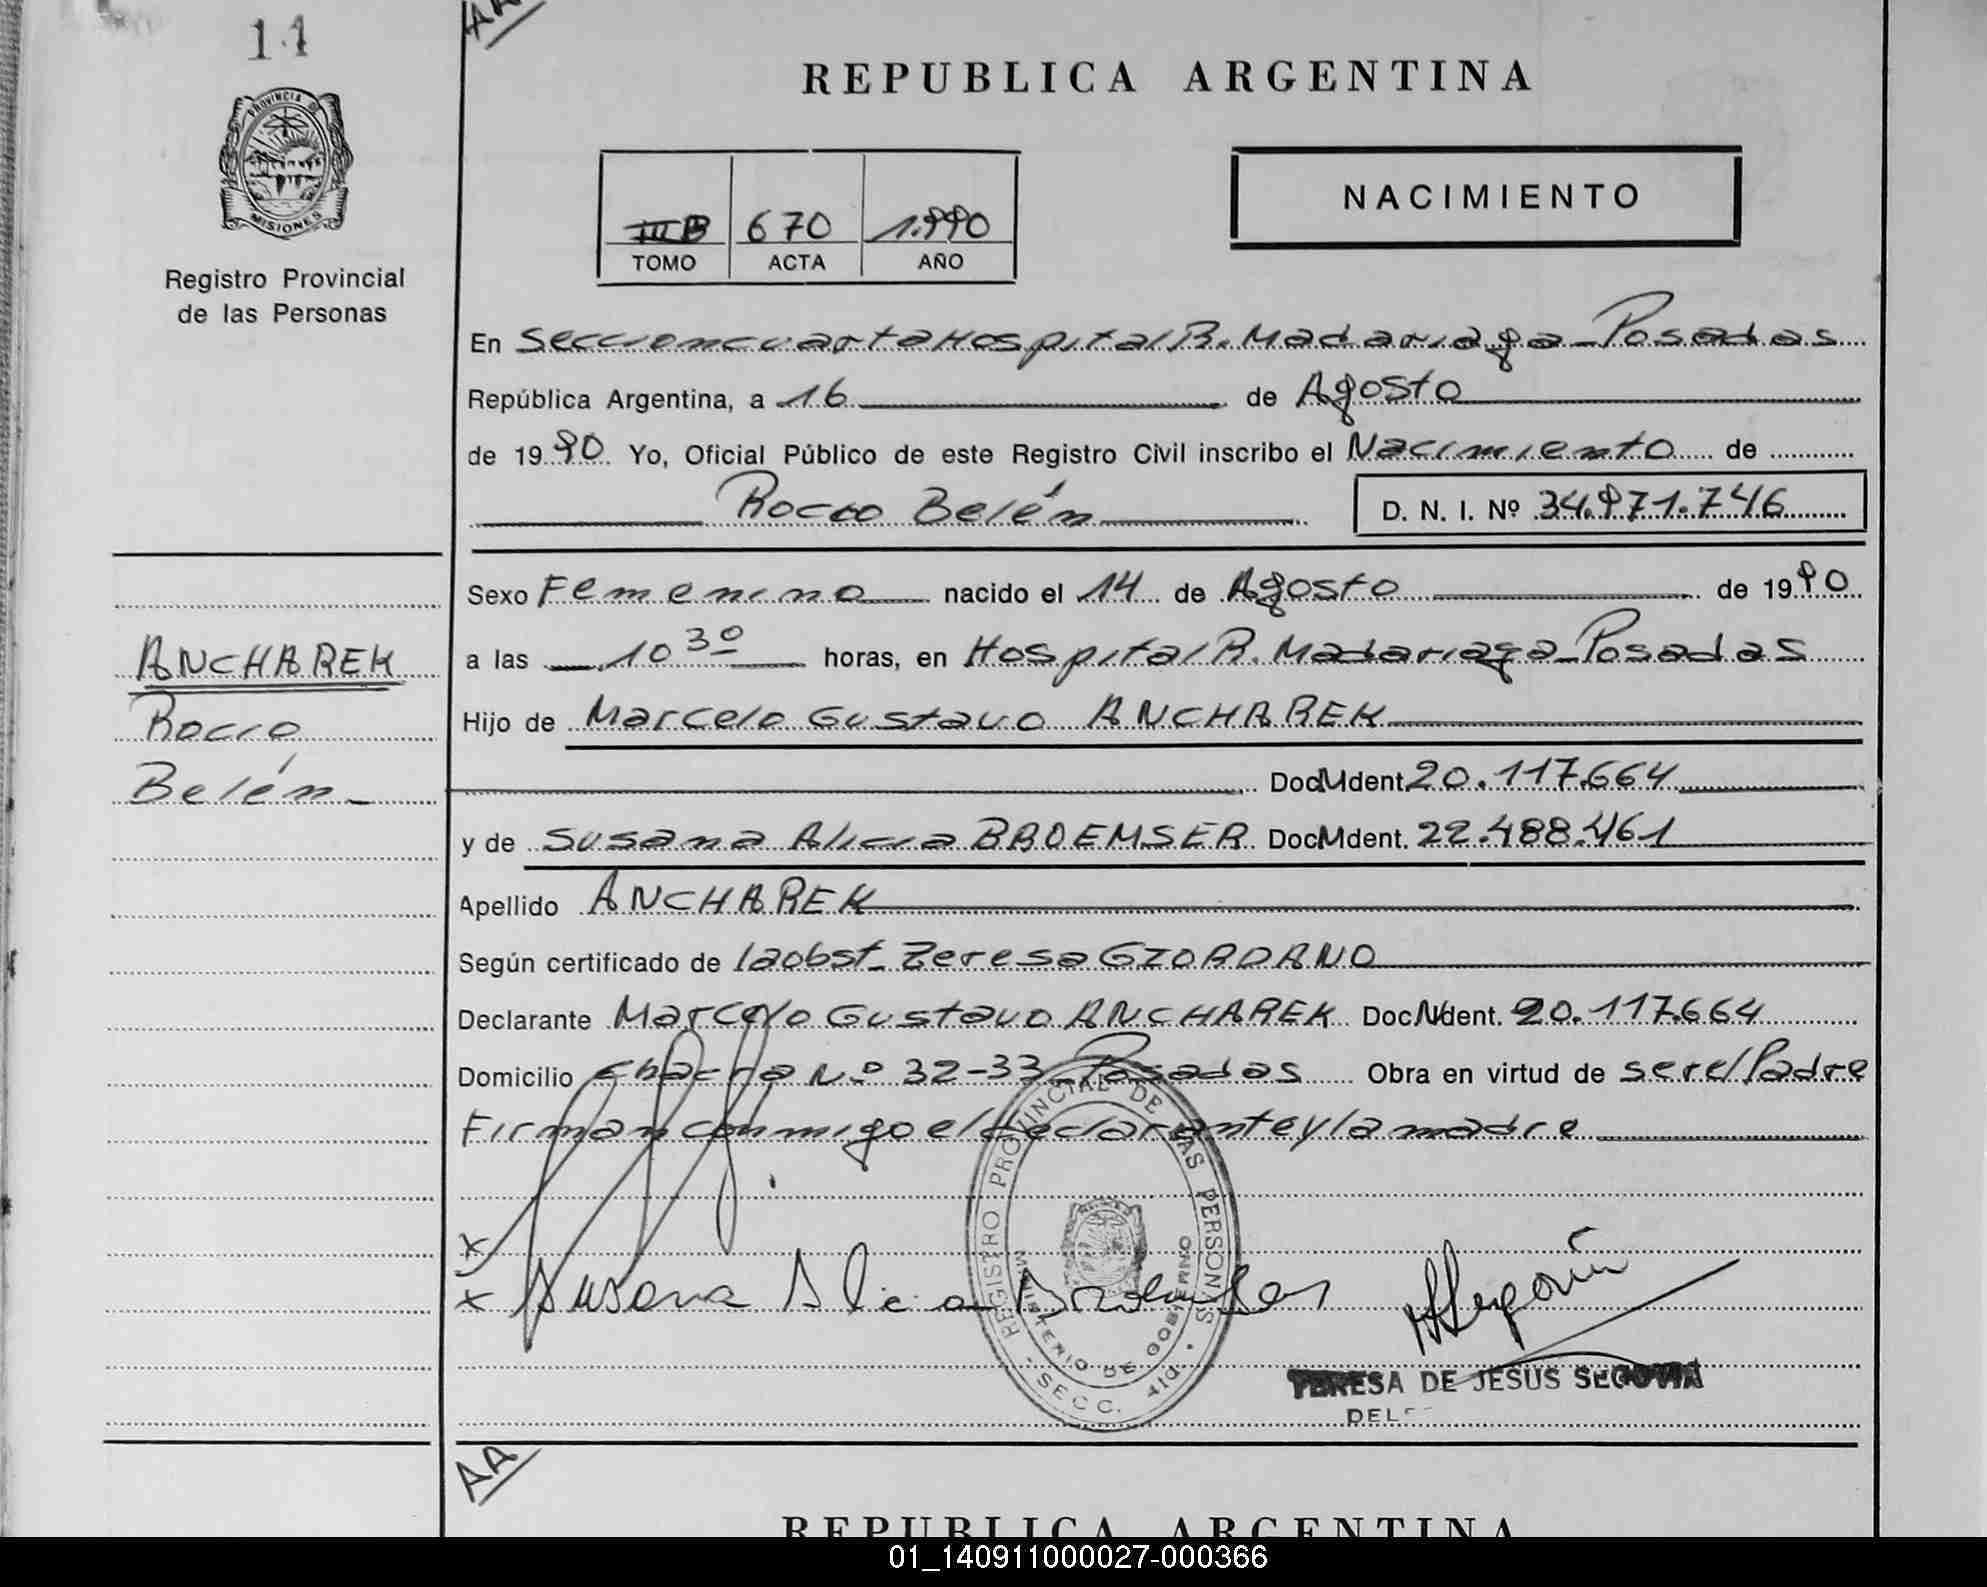 AA
14
REPUBLICA ARGENTINA
PROVINCIA D
MISIONES
NACIMIENTO
III B 670 1.990
TOMO ACTA AÑO
Registro Provincial
de las Personas
En Sección cuarta Hospital R. Madariaga - Posadas
República Argentina, a 16 de Agosto
de 1990 Yo, Oficial Público de este Registro Civil inscribo el Nacimiento de
Rocío Belén D. N. I. Nº 34.971.746
Sexo Femenino nacido el 14 de Agosto de 1990
a las 10 30 horas, en Hospital R. Madariaga - Posadas
ANCHAREK
Rocío
Belén -
Hijo de Marcelo Gustavo ANCHAREK
Doc. Ident. 20.117.664
y de Susana Alicia BROEMSER Doc. Ident. 22.488.461
Apellido ANCHAREK
Según certificado de la obst. Teresa GIORDANO
Declarante Marcelo Gustavo ANCHAREK Doc. Ident. 20.117.664
Domicilio Chacra Nº 32-33 - Posadas Obra en virtud de ser el Padre
Firman conmigo el declarante y la madre
x
x Susana Alicia
REGISTRO PROVINCIAL DE LAS PERSONAS
MINISTERIO DE GOBIERNO
SECC. 4ta.
TERESA DE JESUS SEGOVIA
AA
REPUBLICA ARGENTINA
01_140911000027-000366